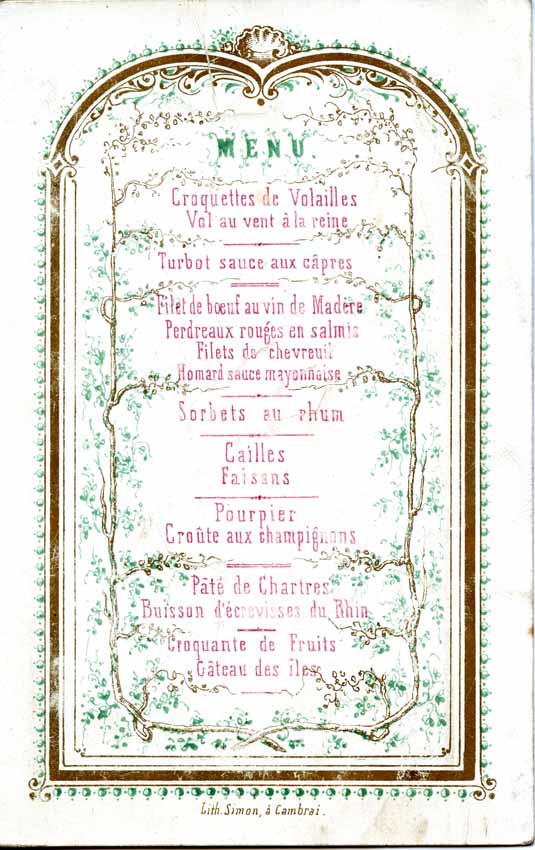 MENU.
Croquettes de Volailles
Vol au vent à la reine
Turbot sauce aux câpres
Filet de bœuf au vin de Madère
Perdreaux rouges en salmis
Filets de chevreuil
Homard sauce mayonnaise
Sorbets au rhum
Cailles
Faisans
Pourpier
Croûte aux champignons
Pâté de Chartres
Buisson d'écrevisses du Rhin
Croquante de Fruits
Gâteau des îles
Lith. Simon, à Cambrai.